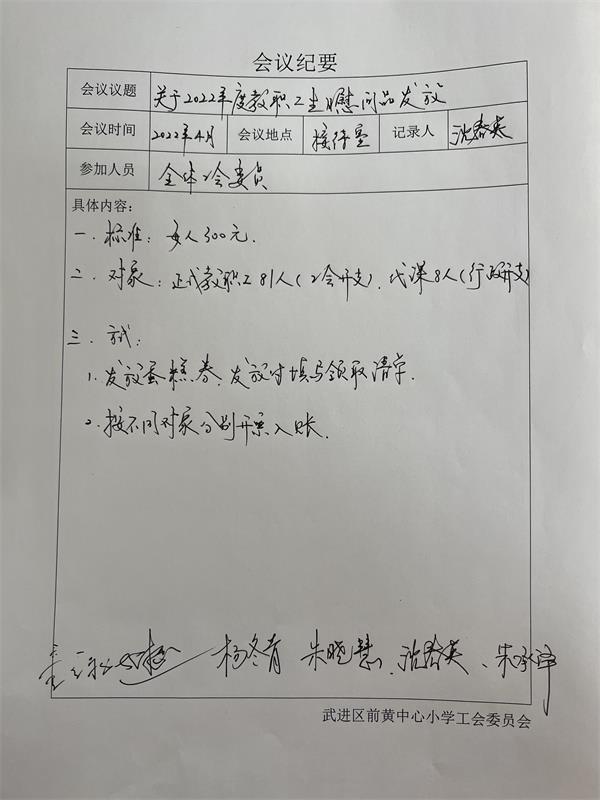 会议纪要
会议议题 关于2022年度教职工生日慰问品发放
会议时间 2022年4月 会议地点 接待室 记录人 沈春英
参加人员 全体工会委员
具体内容:
一. 标准: 每人300元.
二. 对象: 正式教职工81人(工会开支). 代课8人(行政开支)
三. 方式:
1. 发放蛋糕券. 发放时填写领取清单.
2. 按不同对象分别开票入账.
杨冬青 朱晓慧 沈春英
武进区前黄中心小学工会委员会